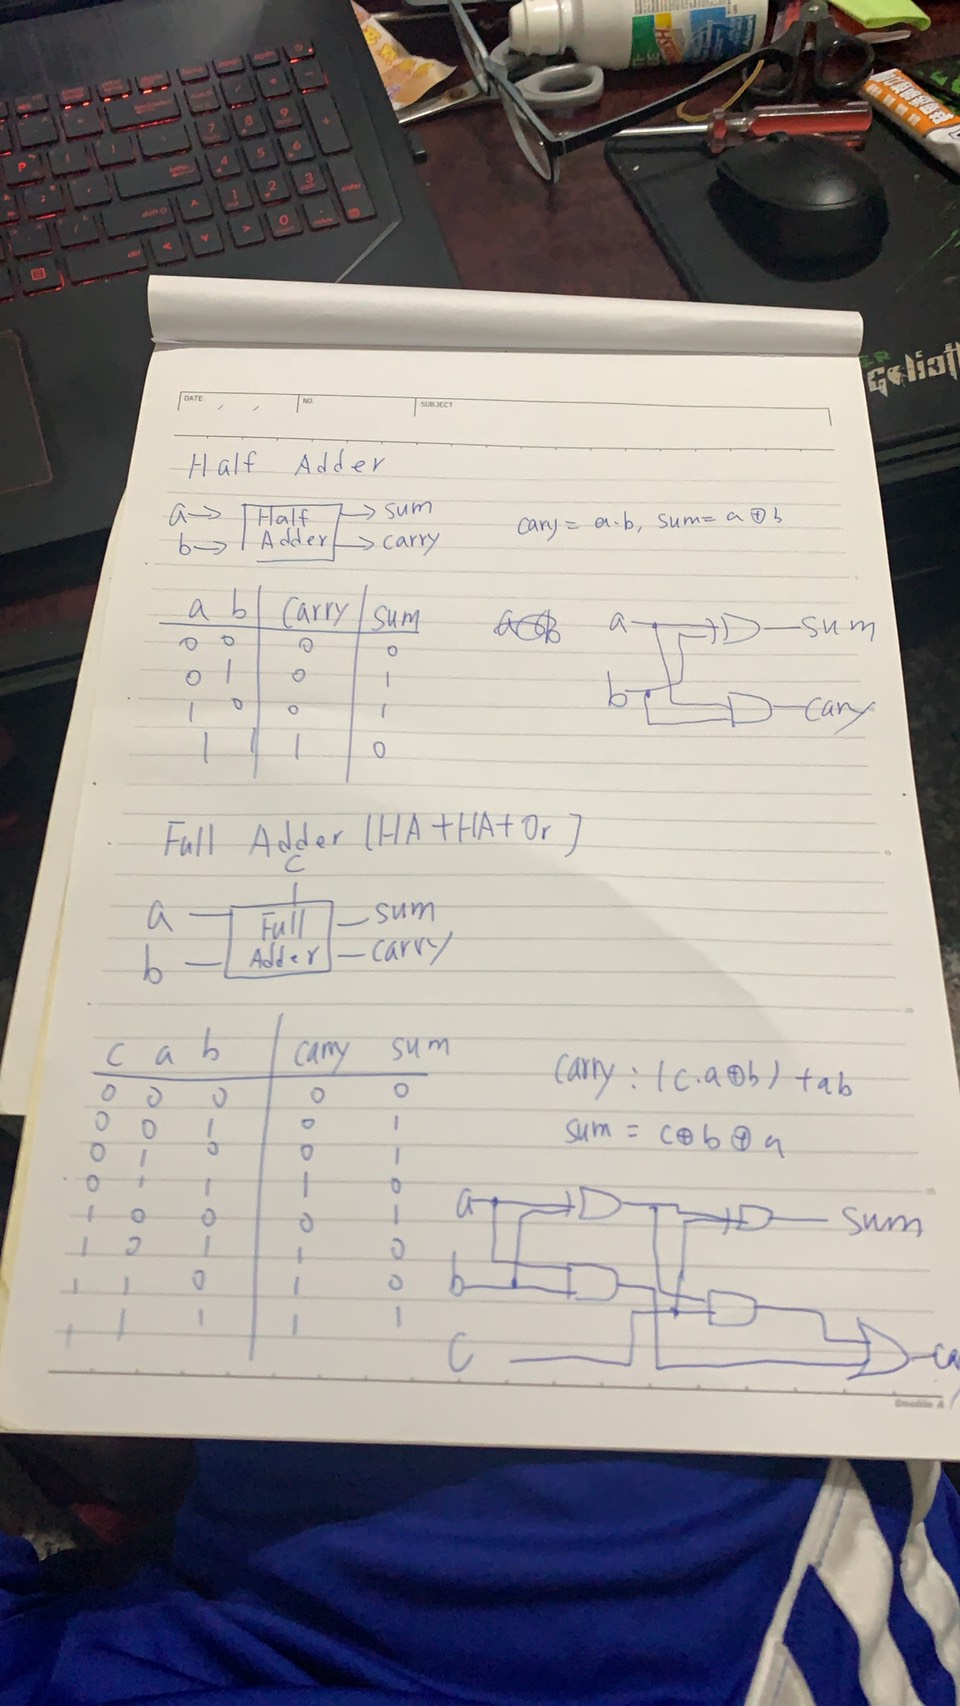 Goliath
DATE
NO.
SUBJECT
Half Adder
a→ Half →sum
b→ Adder →carry
cary = a·b, sum= a⊕b
a b carry sum
0 0 0 0
0 1 0 1
1 0 0 1
1 1 1 0
a sum
b cary
Full Adder [HA+HA+Or]
c
a Full sum
b Adder carry
c a b carry sum
0 0 0 0 0
0 0 1 0 1
0 1 0 0 1
0 1 1 1 0
1 0 0 0 1
1 0 1 1 0
1 1 0 1 0
1 1 1 1 1
carry : (c·a⊕b) + ab
sum = c⊕b⊕a
a sum
b
C ca
Double A